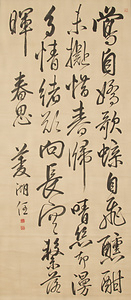 鶯自嬌歌蝶自飛醺酣
未擬惜春歸晴絲却漫
多情緒欲向長空繋落
暉
春思
菱湖任